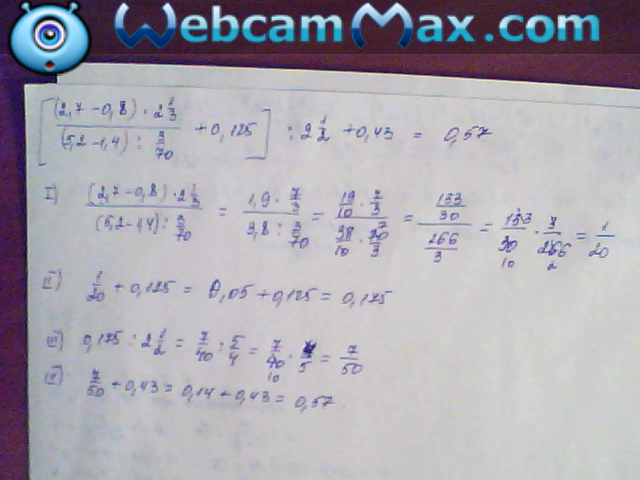 WebcamMax.com
[((2,7-0,8)·2 1/3)/((5,2-1,4):3/70) + 0,125] : 2 1/2 + 0,43 = 0,57
I) ((2,7-0,8)·2 1/3)/((5,2-1,4):3/70) = (1,9·7/3)/(3,8:3/70) = (19/10·7/3)/(38/10·70/3) = (133/30)/(266/3) = 133/30·3/266 = 1/20
II) 1/20 + 0,125 = 0,05 + 0,125 = 0,175
III) 0,175 : 2 1/2 = 7/40 : 5/4 = 7/40 · 4/5 = 7/50
7/50 + 0,43 = 0,14 + 0,43 = 0,57